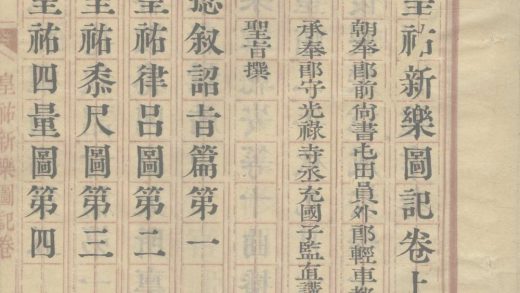 皇祐新樂圖記卷上
朝奉郎前尚書屯田員外郎輕車都
承奉郎守光祿寺丞充國子監直講
聖旨撰
總叙詔旨篇第一
皇祐律呂圖第二
皇祐黍尺圖第三
皇祐四量圖第四
皇祐新樂圖記卷